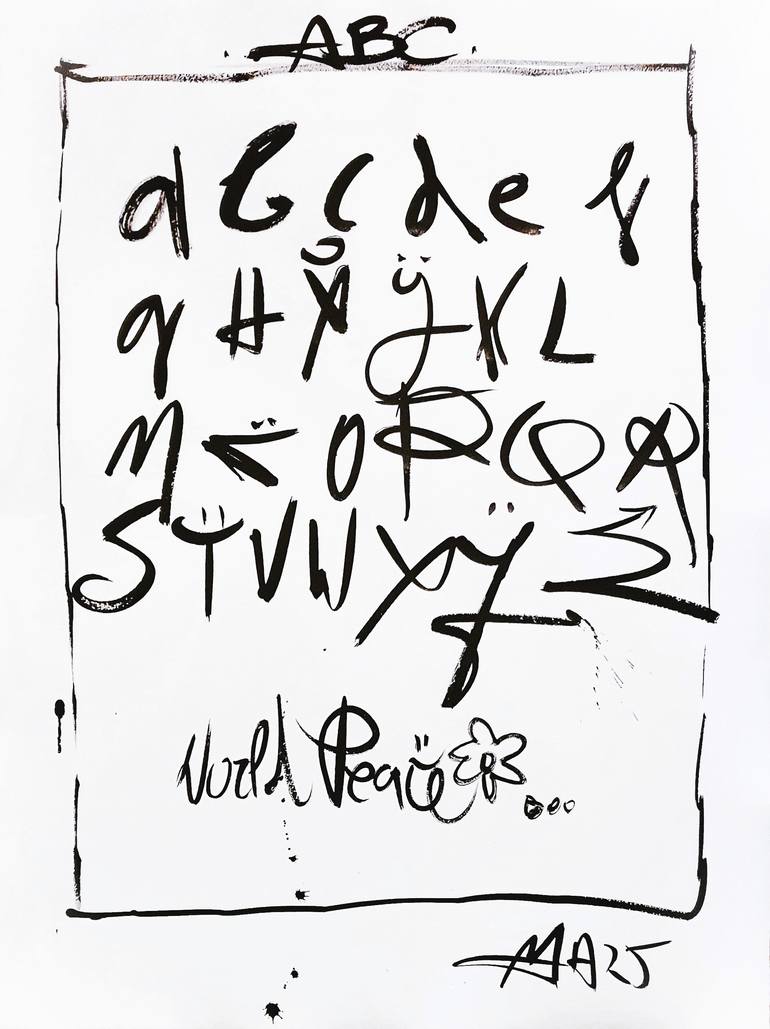 ABC
a b c d e f
g H I J K L
M N O P Q R
S T V W X Y Z
World Peace...
MA25